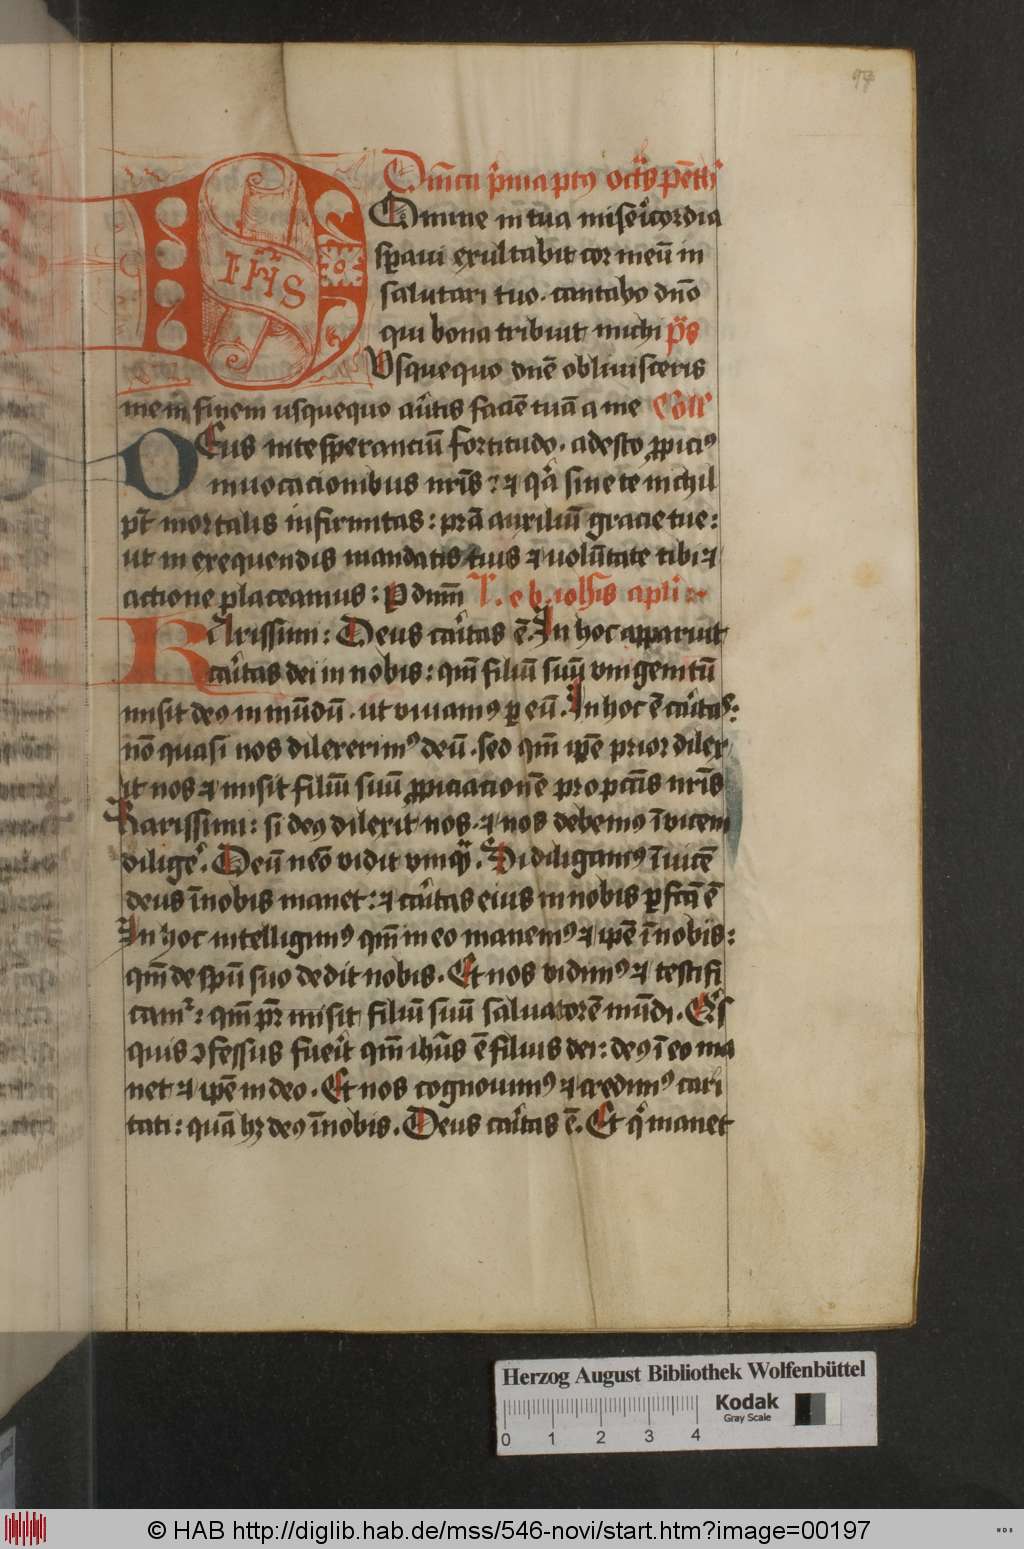 97
Dn̄ica p̄ma pꝰ oct̄s pēth̄
Domine in tua misericordia
sꝑaui exultabit cor meū in
salutari tuo. cantabo dn̄o
qui bona tribuit michi p̄s
Vsquequo dn̄e obliuisceris
me in finem usquequo au͛tis faciē tuā a me Coll̄e
IHS
DEus in te speranciū fortitudo. adesto ꝓpiciꝰ
inuocacionibus nr̄is: ⁊ qꝛ̄ sine te nichil
pt̄ mortalis infirmitas: p̄ra auxiliū gracie tue:
ut in exequendis mandatis tuis ⁊ uolūtate tibi ⁊
actione placeamus: P dnm̄ L. e b. ioh̄is apl̄i
KArissimi: Deus ca͛itas ē. In hoc apparuit
ca͛itas dei in nobis: qm̄ filiū suū vnigenitū
misit deꝰ in mūdū. ut viuamꝰ ꝑ eū. In hoc ē ca͛itas:
nō quasi nos dilexerimꝰ deū. sed qm̄ ip̄e prior dilex
it nos ⁊ misit filiū suū ꝓpiciacionē pro pctīs nr̄is
Karissimi: si deꝰ dilexit nos. ⁊ nos debemꝰ īuicem
dilige͛. Deū nēo vidit vnqꝫ̄. Si diligamꝰ īuicē
deus ī nobis manet: ⁊ ca͛itas eius in nobis ꝑfctā ē
In hoc intelligimꝰ qm̄ in eo manemꝰ ⁊ ip̄e ī nobis:
qm̄ de sp̄u suo dedit nobis. Et nos vidimꝰ ⁊ testifi
camꝛ: qm̄ pr̄ misit filiū suū saluatorē mūdi. Q͛s
quis ꝯfessus fue͛it qm̄ ih̄us ē filius dei: deꝰ ī eo ma
net ⁊ ip̄e in deo. Et nos cognouimꝰ ⁊ credimꝰ cari
tati: quā hꝫ deꝰ ī nobis. Deus ca͛itas ē. Et q̄ manet
Herzog August Bibliothek Wolfenbüttel
Kodak
Gray Scale
0 1 2 3 4
© HAB http://diglib.hab.de/mss/546-novi/start.htm?image=00197